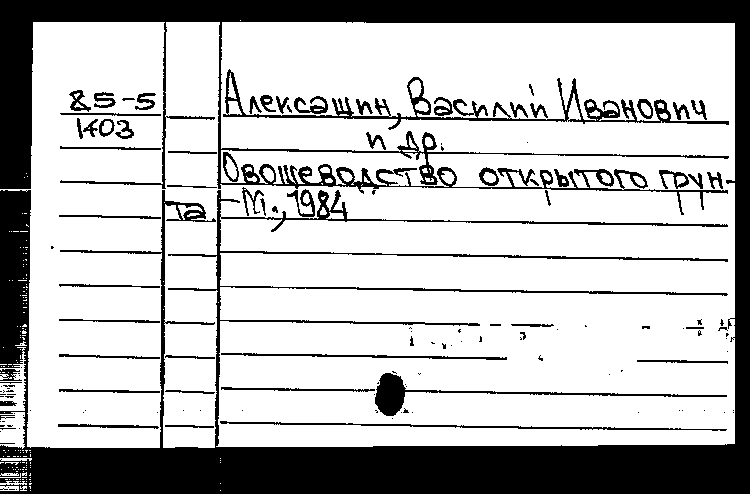 85-5 Алексашин, Василий Иванович
1403 и др.
Овощеводство открытого грун-
та. -М., 1984